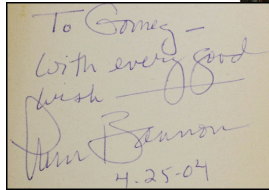 To Gomez –
with every good
wish —
Ann Bannon
4-25-04